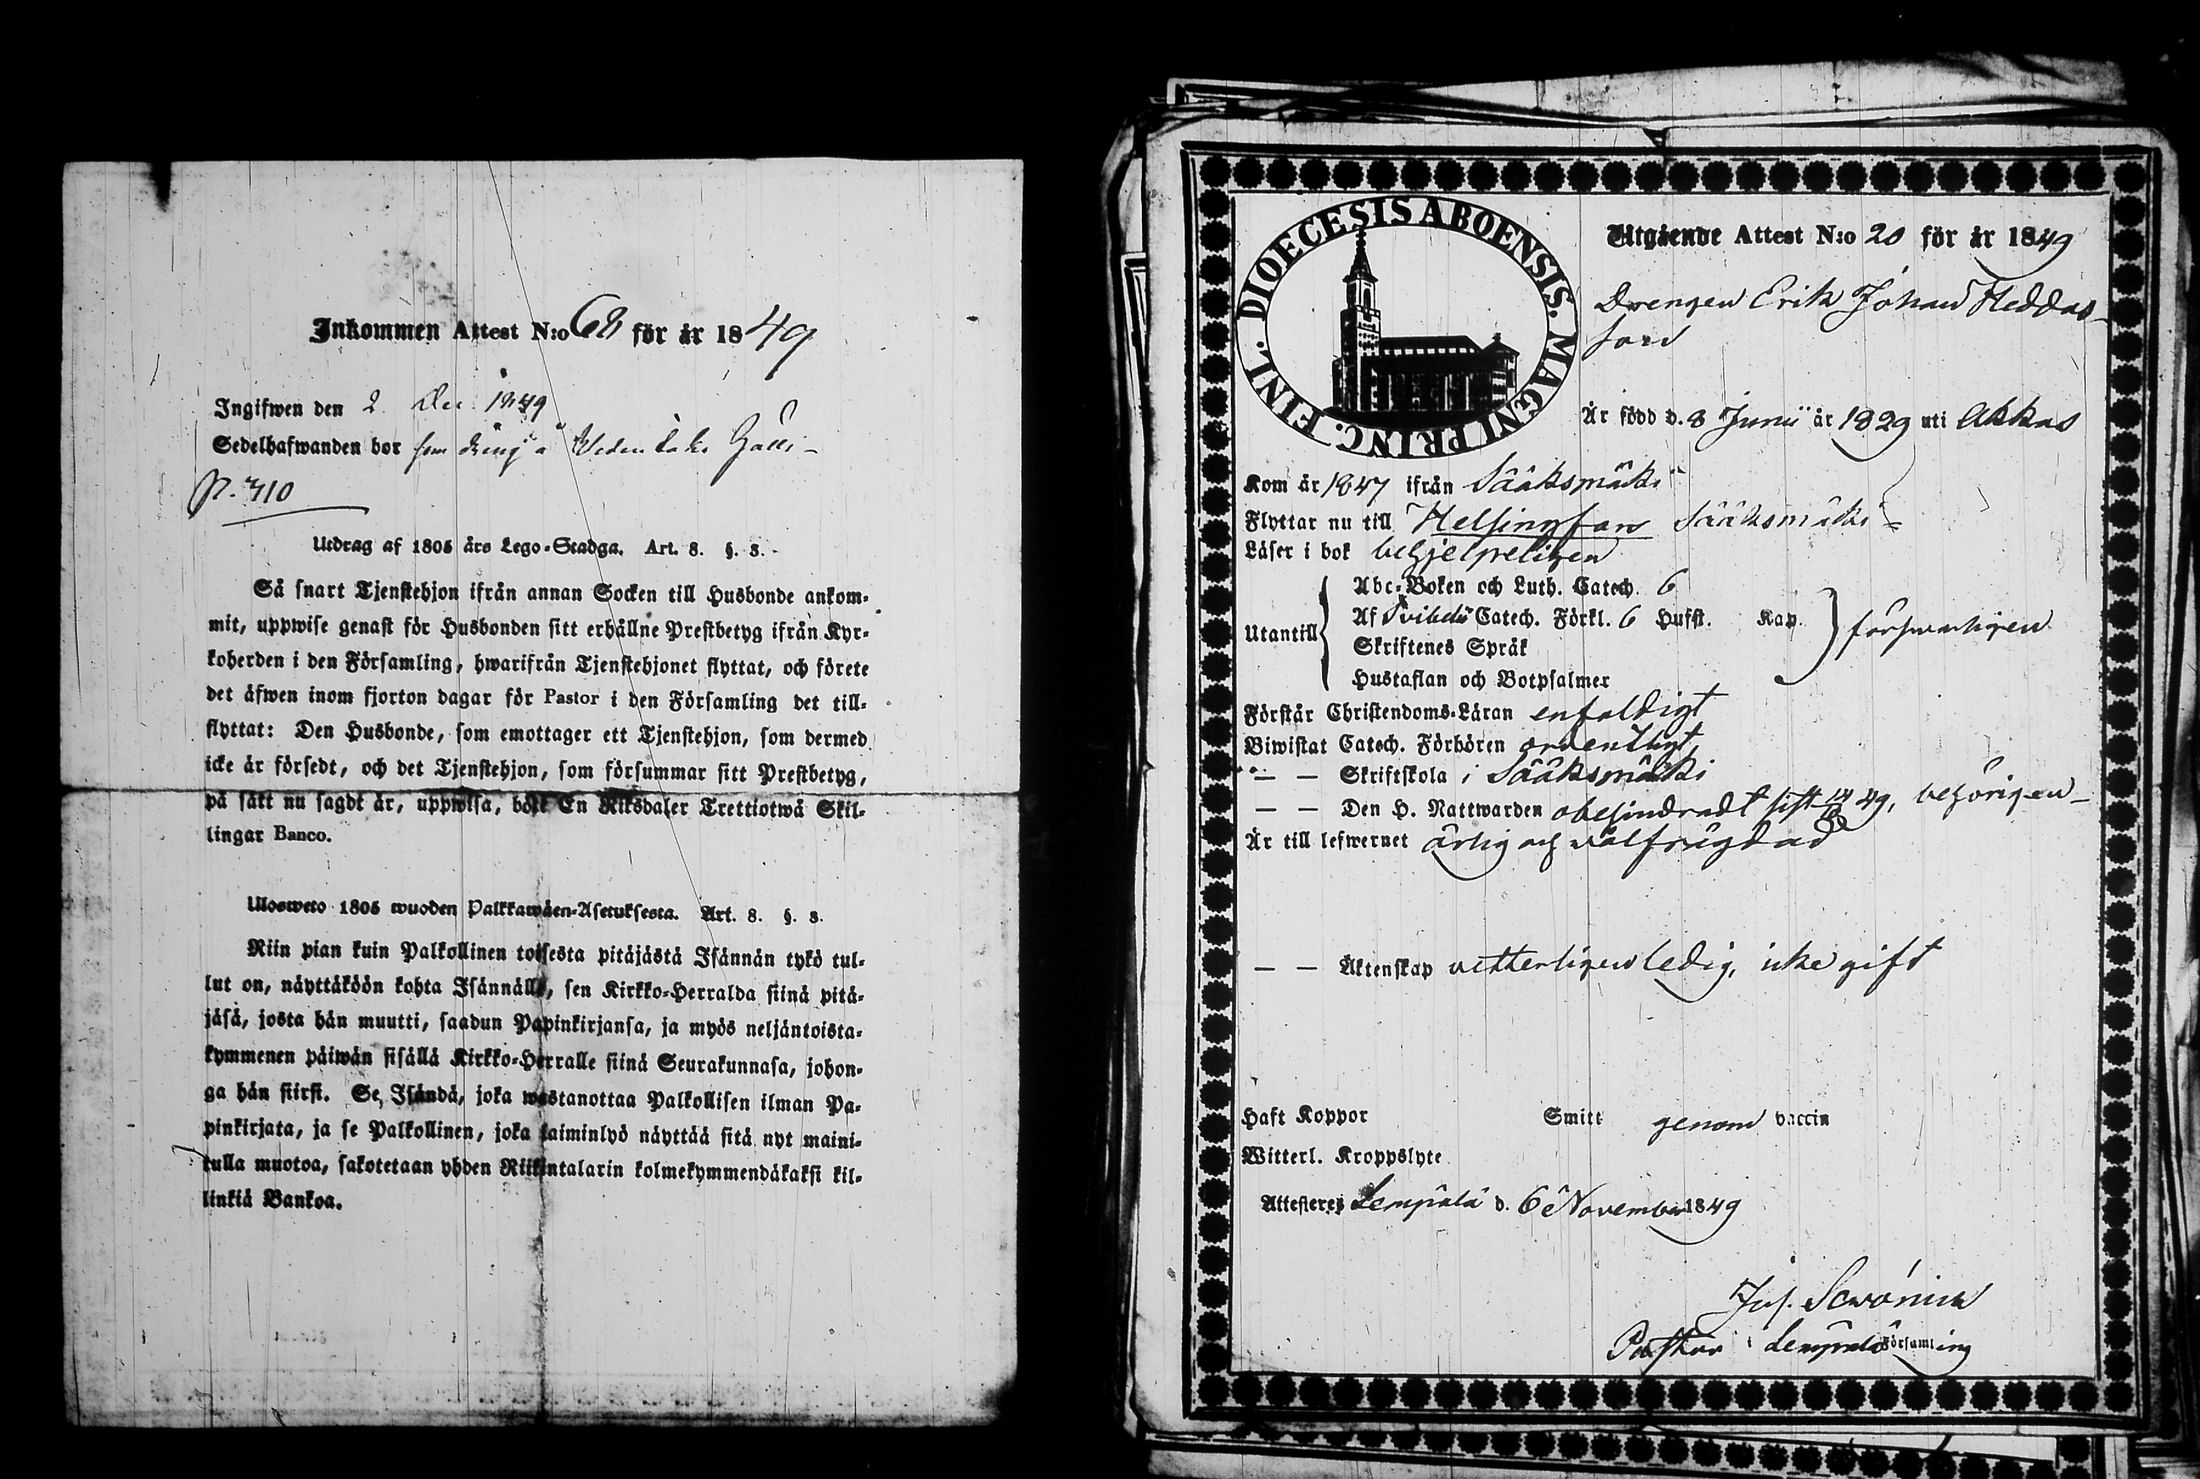 Inkommen Attest N:o 68 för år 1849
Ingifwen den 2 Dec 1849
Sedelhafwanden bor som dräng å
p. 710
Utdrag af 1805 års Lego-Stadga. Art. 8. §. 3.
Så snart Tjenstehjon ifrån annan Socken till Husbonde ankom-
mit, uppwise genast för Husbonden sitt erhållne Prestbetyg ifrån Kyr-
koherden i den Församling, hwarifrån Tjenstehjonet flyttat, och förete
det äfwen inom fjorton dagar för Pastor i den Församling det till-
flyttat: Den Husbonde, som emottager ett Tjenstehjon, som dermed
icke är försedt, och det Tjenstehjon, som försummar sitt Prestbetyg,
på sätt nu sagdt är, uppwisa, böte En Riksdaler Trettiotwå Skil-
lingar Banco.
Ulosweto 1805 wuoden Palkkawäen-Asetuksesta. Art. 8. §. 3.
Niin pian kuin Palkollinen toisesta pitäjästä Isännän tykö tul-
lut on, näyttäköön kohta Isännälle, sen Kirkko-Herralda siinä pitä-
jäsä, josta hän muutti, saadun Papinkirjansa, ja myös neljäntoista-
kymmenen päiwän sisällä Kirkko-Herralle siinä Seurakunnasa, johon-
ga hän siirsi. Se Isändä, joka wastanottaa Palkollisen ilman Pa-
pinkirjata, ja se Palkollinen, joka laiminlyö näyttää sitä nyt maini-
tulla muotoa, sakotetaan yhden Riikintalarin kolmekymmendäkaksi kil-
linkiä Bankoa.
DIOECESIS ABOENSIS. MAGNI PRINC. FINL.
Utgående Attest N:o 20 för år 1849
Drengen Erik Johan Heddas-
Är född d. 8 Junii år 1829 uti Akkas
Kom år 1847 ifrån Sääksmäki
Flyttar nu till Helsingfors Sääksmäki
Läser i bok behjelpeligen
Abc-Boken och Luth. Catech. 6
Af Svibelii Catech. Förkl. 6 Hufst. Kap.
Utantill försvarligen
Skriftenes Språk
Hustaflan och Botpsalmer
Förstår Christendoms-Läran enfaldigt
Biwistat Catech. Förhören ordentligt,
— — Skriftskola i Sääksmäki
— — Den H. Nattwarden obehindradt sist 49, behörigen
Är till lefwernet ärlig och välfrägdad
— — Äktenskap vetterligen ledig, icke gift
Haft Koppor Smitt genom vaccin
Witterl. Kroppslyte
Attesteres Lempälä d. 6 November 1849
Pastor i Lempälä Församling